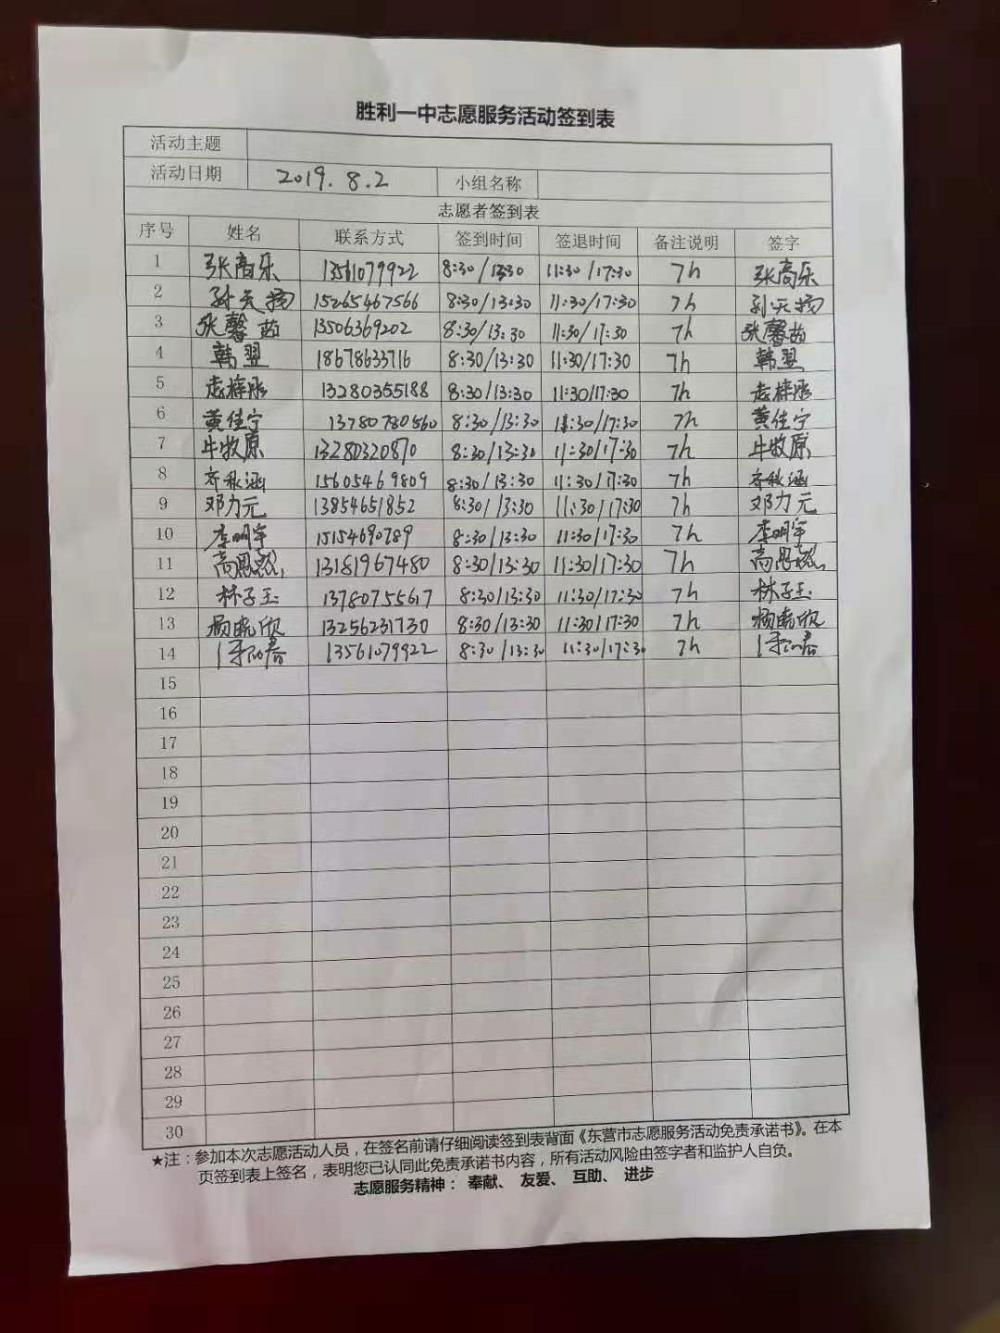 胜利一中志愿服务活动签到表
活动主题
活动日期 2019.8.2 小组名称
志愿者签到表
序号 姓名 联系方式 签到时间 签退时间 备注说明 签字
1 张高乐 13561079922 8:30/13:30 11:30/17:30 7h 张高乐
2 孙天扬 15265467566 8:30/13:30 11:30/17:30 7h 孙天扬
3 张馨 13506369202 8:30/13:30 11:30/17:30 7h 张馨
4 韩翌 18678633716 8:30/13:30 11:30/17:30 7h 韩翌
5 13280355188 8:30/13:30 11:30/17:30 7h
6 黄佳宁 13780780560 8:30/13:30 11:30/17:30 7h 黄佳宁
7 牛牧原 13280320870 8:30/13:30 11:30/17:30 7h 牛牧原
8 齐秋涵 15605469809 8:30/13:30 11:30/17:30 7h 齐秋涵
9 邓力元 13854651852 8:30/13:30 11:30/17:30 7h 邓力元
10 李明宇 15154690789 8:30/13:30 11:30/17:30 7h 李明宇
11 高思 13181967480 8:30/13:30 11:30/17:30 7h 高思
12 林子玉 13780755617 8:30/13:30 11:30/17:30 7h 林子玉
13 杨晓欣 13256231730 8:30/13:30 11:30/17:30 7h 杨晓欣
14 13561079922 8:30/13:30 11:30/17:30 7h
15
16
17
18
19
20
21
22
23
24
25
26
27
28
29
30
★注：参加本次志愿活动人员，在签名前请仔细阅读签到表背面《东营市志愿服务活动免责承诺书》。在本
页签到表上签名，表明您已认同此免责承诺书内容，所有活动风险由签字者和监护人自负。
志愿服务精神： 奉献、 友爱、 互助、 进步